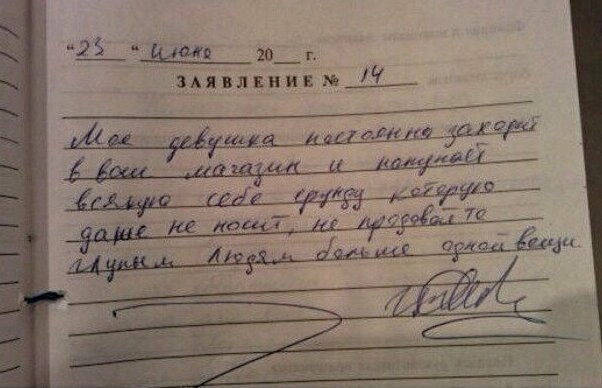 "23 " июня 20 г.
ЗАЯВЛЕНИЕ № 14
Мое девушка постоянно заходит
в ваш магазин и покупает
всякую себе ерунду которую
даже не носит, не продовайте
глупым людям больше одной вещи